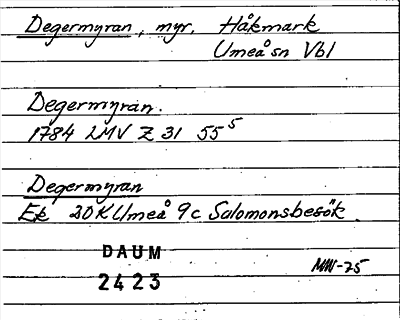 Degermyran, myr. Håkmark
Umeå sn Vbl
Degermyran.
1784 LMV Z 31 55⁵
Degermyran
Ek 20K Umeå 9c Salomonsbesök
DAUM
2423
MW-75